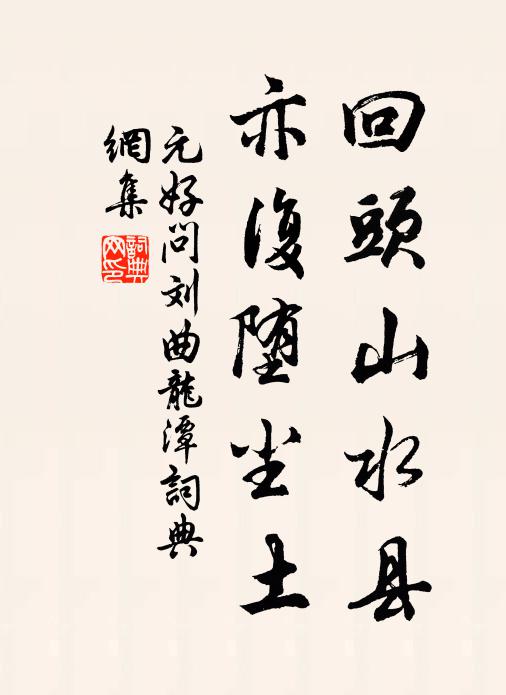 回頭山水县
亦復堕尘土
元好问刘曲龍潭詞典
網集
詞典
网印